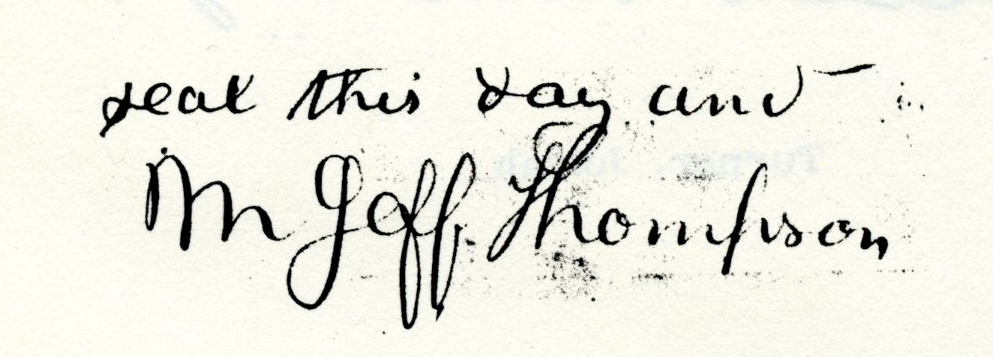 seal this day and
M Jeff. Thompson